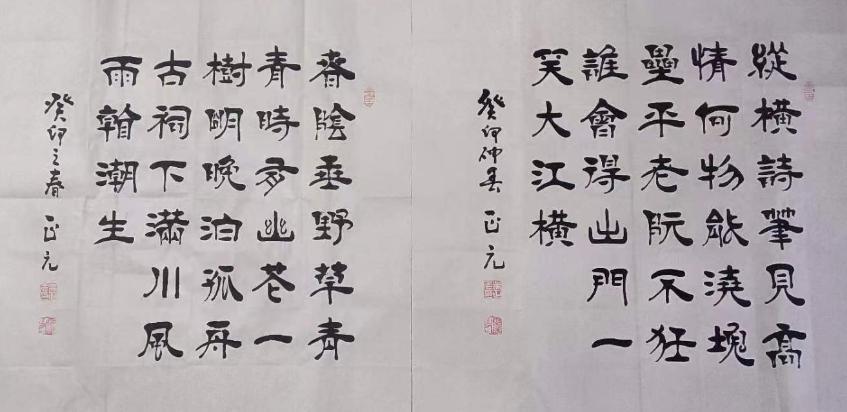 縱橫詩筆見高
情何物能澆塊
壘平老阮不狂
誰會得出門一
笑大江橫
癸卯仲春 正元
春陰垂野草青
青時有幽花一
樹明晚泊孤舟
古祠下滿川風
雨看潮生
癸卯之春 正元